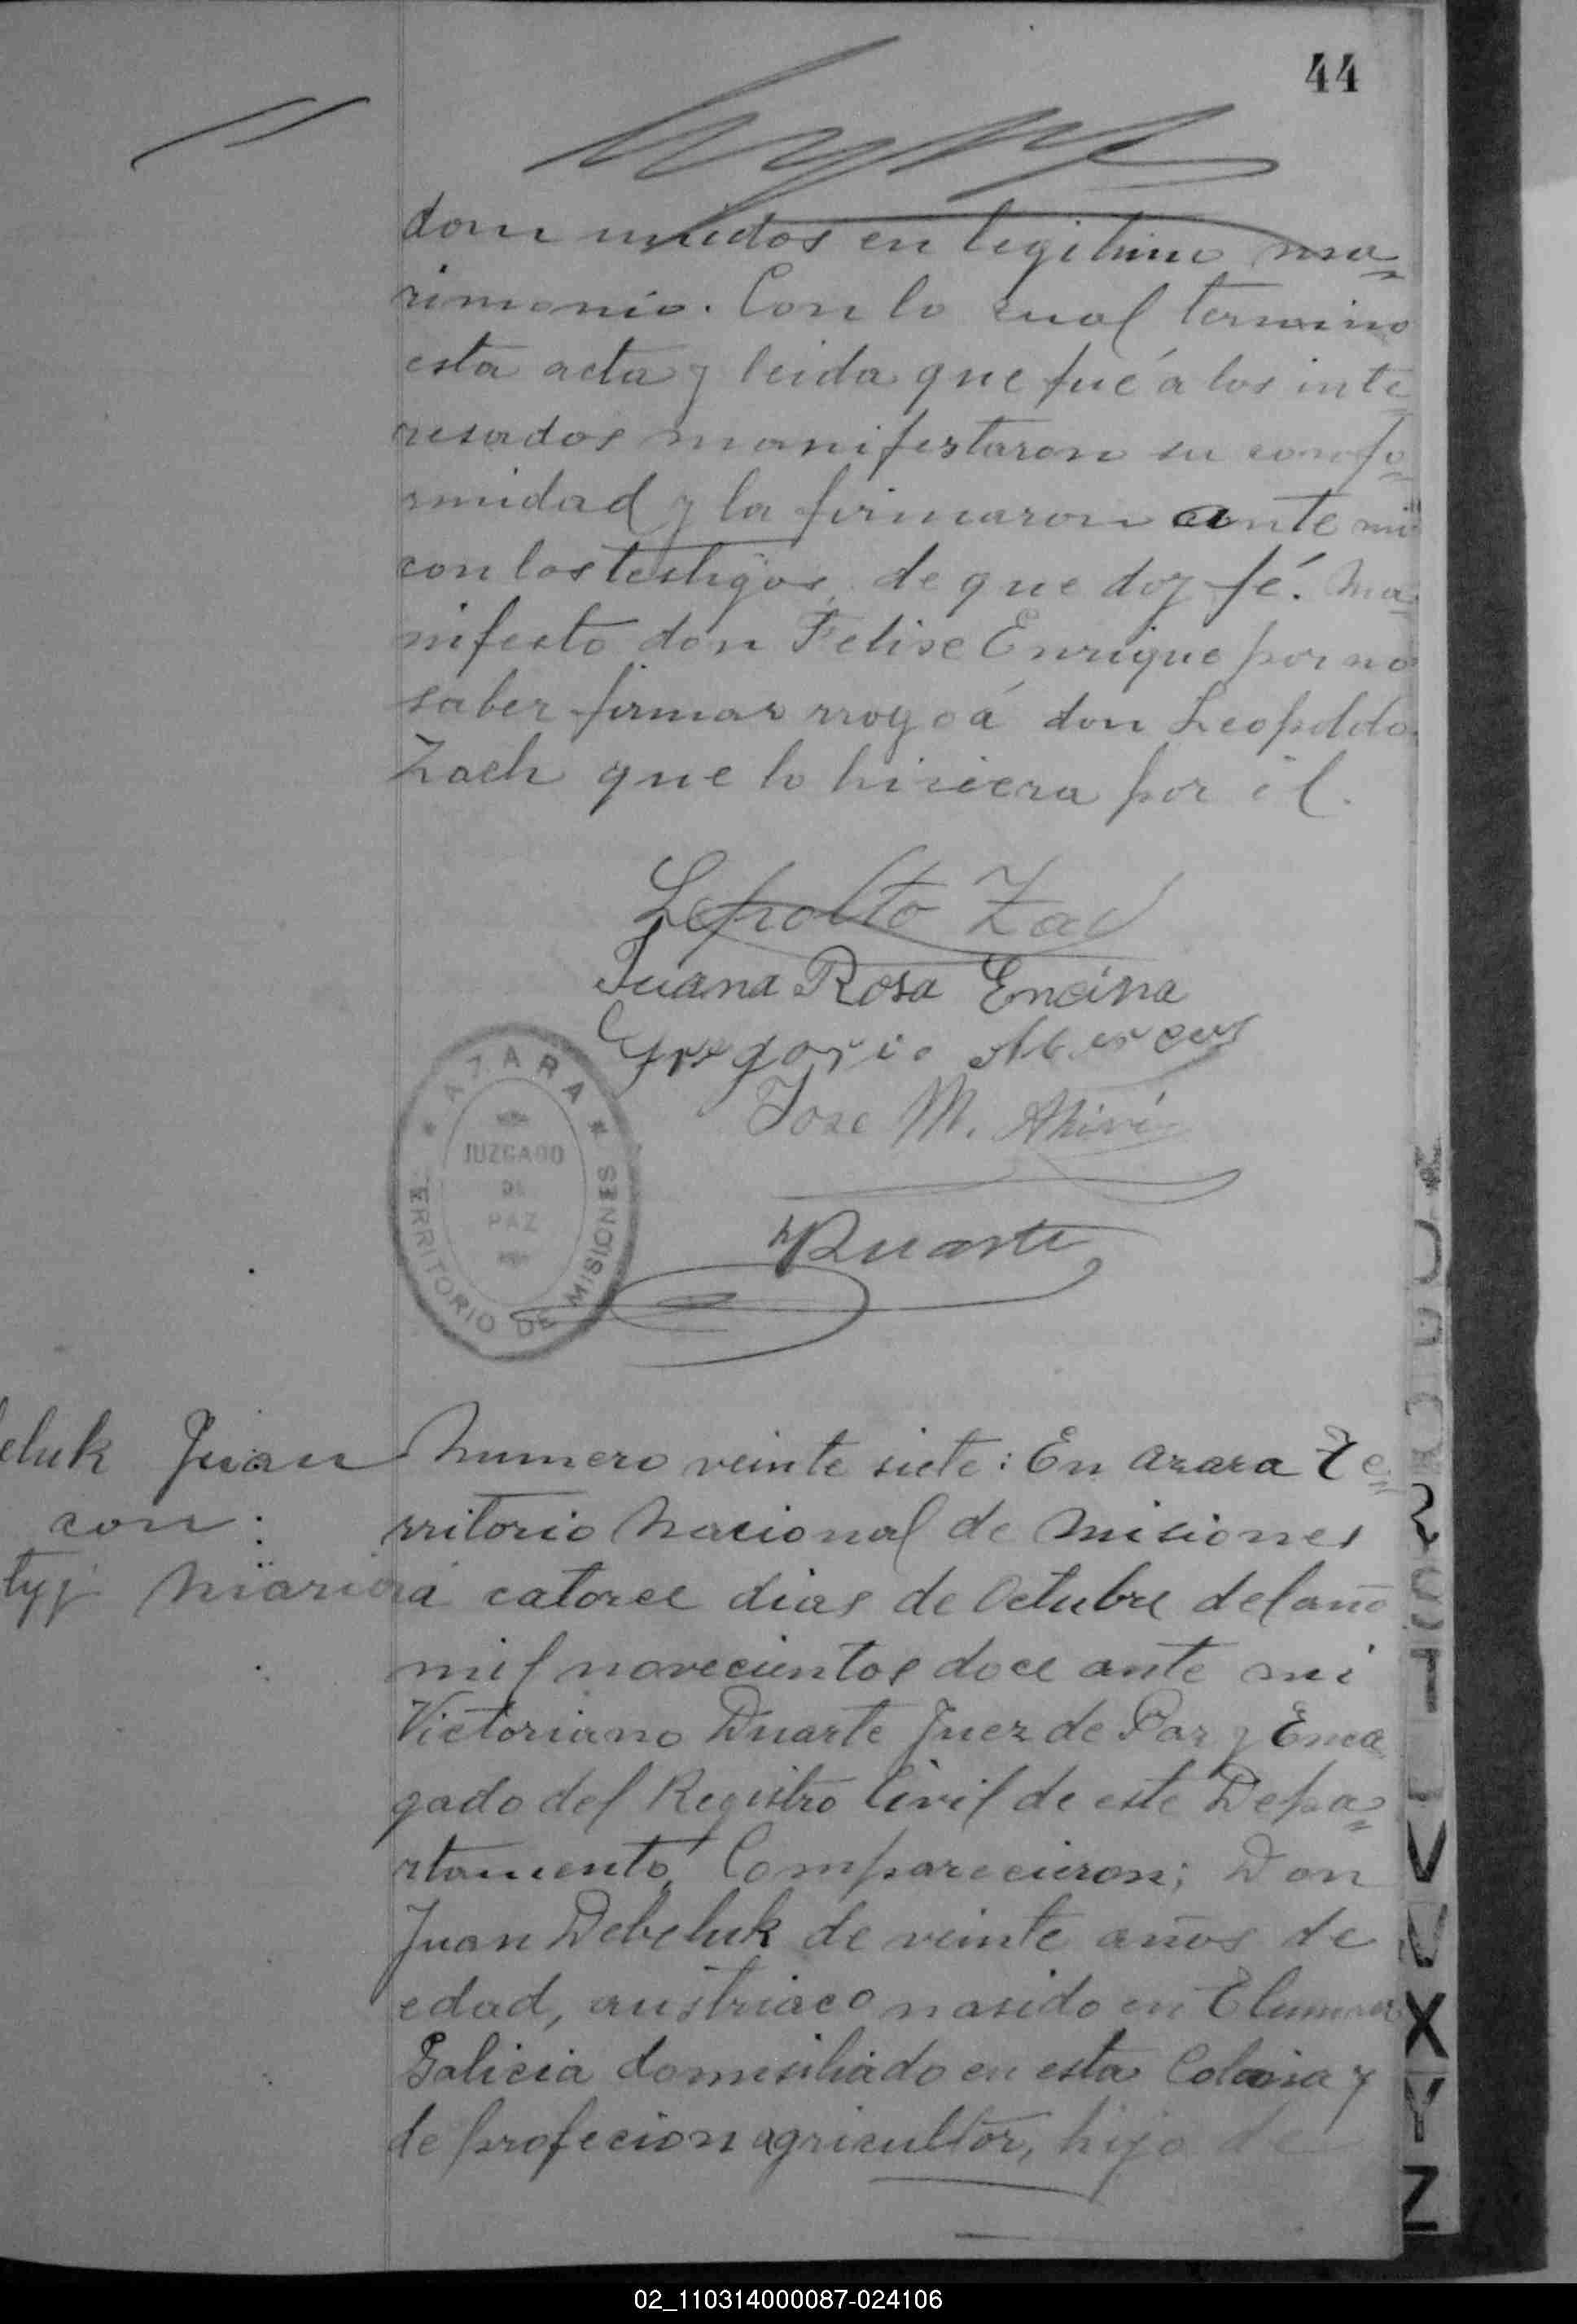 44
dom unidos en legitimo ma=
rimonio. Con lo cual termino
esta acta y leida que fué á los inte
resados manifestaron su confo=
rmidad y la firmaron ante mi
con los testigos, de que doy fé. Ma=
nifesto don Felise Enrique por no
saber firmar rrogoá don Leopoldo
Zach que lo hiciera por él.
Lepolto Zac
Juana Rosa Encina
Gregorio
Jose M.
Duarte
* AZARA *
JUZGADO
DE
PAZ
TERRITORIO DE MISIONES
eluk Juan
con:
tyj Maria
Numero veinte siete: En Azara Te=
rritorio Nacional de Misiones
á catorce dias de Octubre del año
mil novecientos doce ante mi
Victoriano Duarte Juez de Paz y Enca
gado del Registro Civil de este Depa=
rtamento, Comparecieron; Don
Juan Debeluk de veinte años de
edad, austriaco nasido en
Galicia domisiliado en esta Colonia y
de profecion agricultor, hijo de
V
V
X
Y
Z
02_110314000087-024106